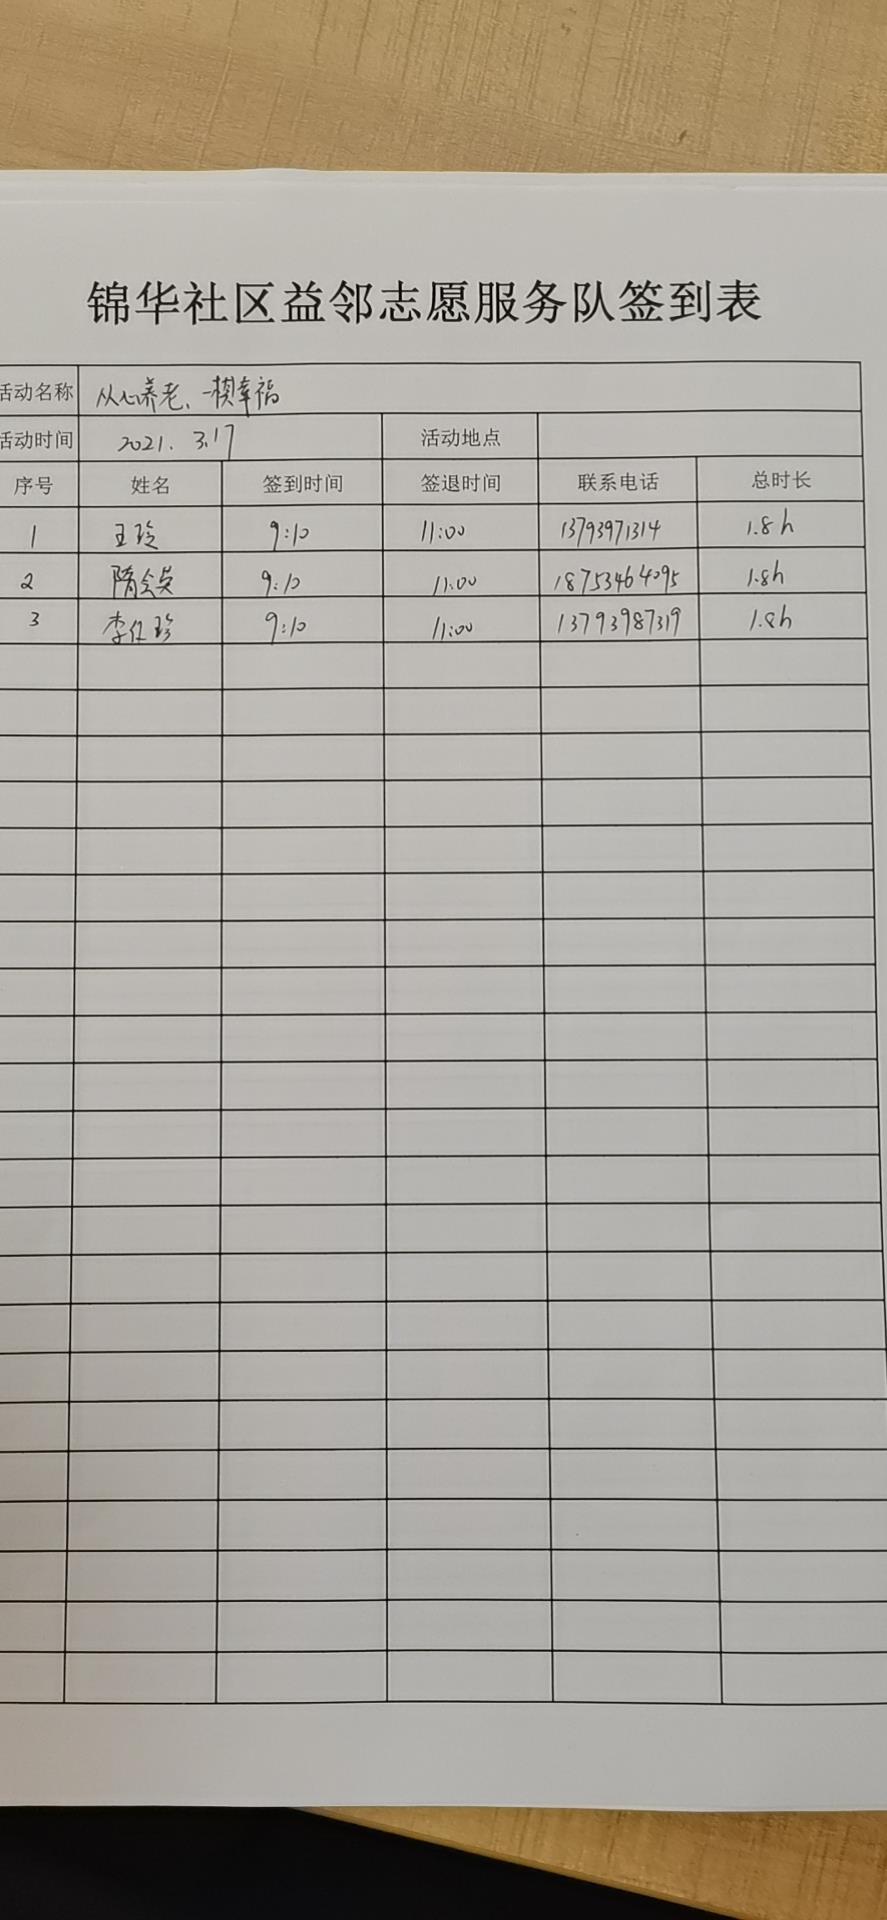 锦华社区益邻志愿服务队签到表
活动名称 从心养老、一模幸福
活动时间 2021. 3.17 活动地点
序号 姓名 签到时间 签退时间 联系电话 总时长
1 王玲 9:10 11:00 13793971314 1.8h
2 隋会英 9:10 11:00 18753464095 1.8h
3 李仕珍 9:10 11:00 13793987319 1.8h